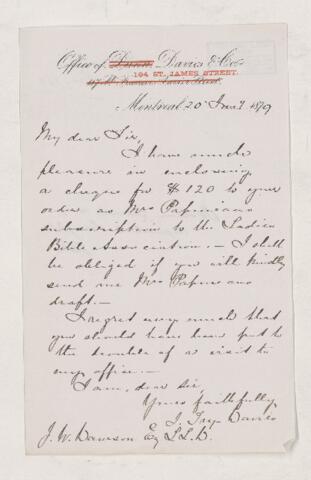 Office of Dunn Davies & Co.
194 ST. JAMES STREET.
Montreal 20 1879
My dear Sir,
I have much
pleasure in enclosing
a cheque for $120 to your
order as Mrs
subscription to the Ladies
Bible Association. — I shall
be obliged if you will kindly
send me Mrs
draft. —
I regret very much that
you should have been put to
the trouble of a visit to
my office. —
I am, dear Sir,
Yours faithfully,
Davies
J. W. Dawson Esq LL.D.